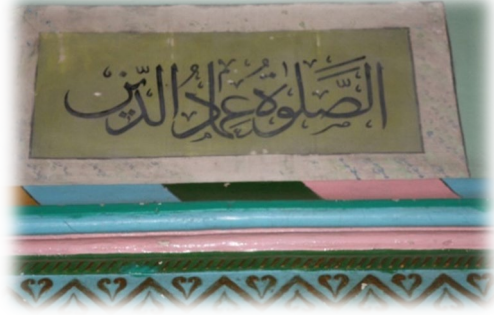 الصَّلوٰةُ عِمَادُ الدِّيْن